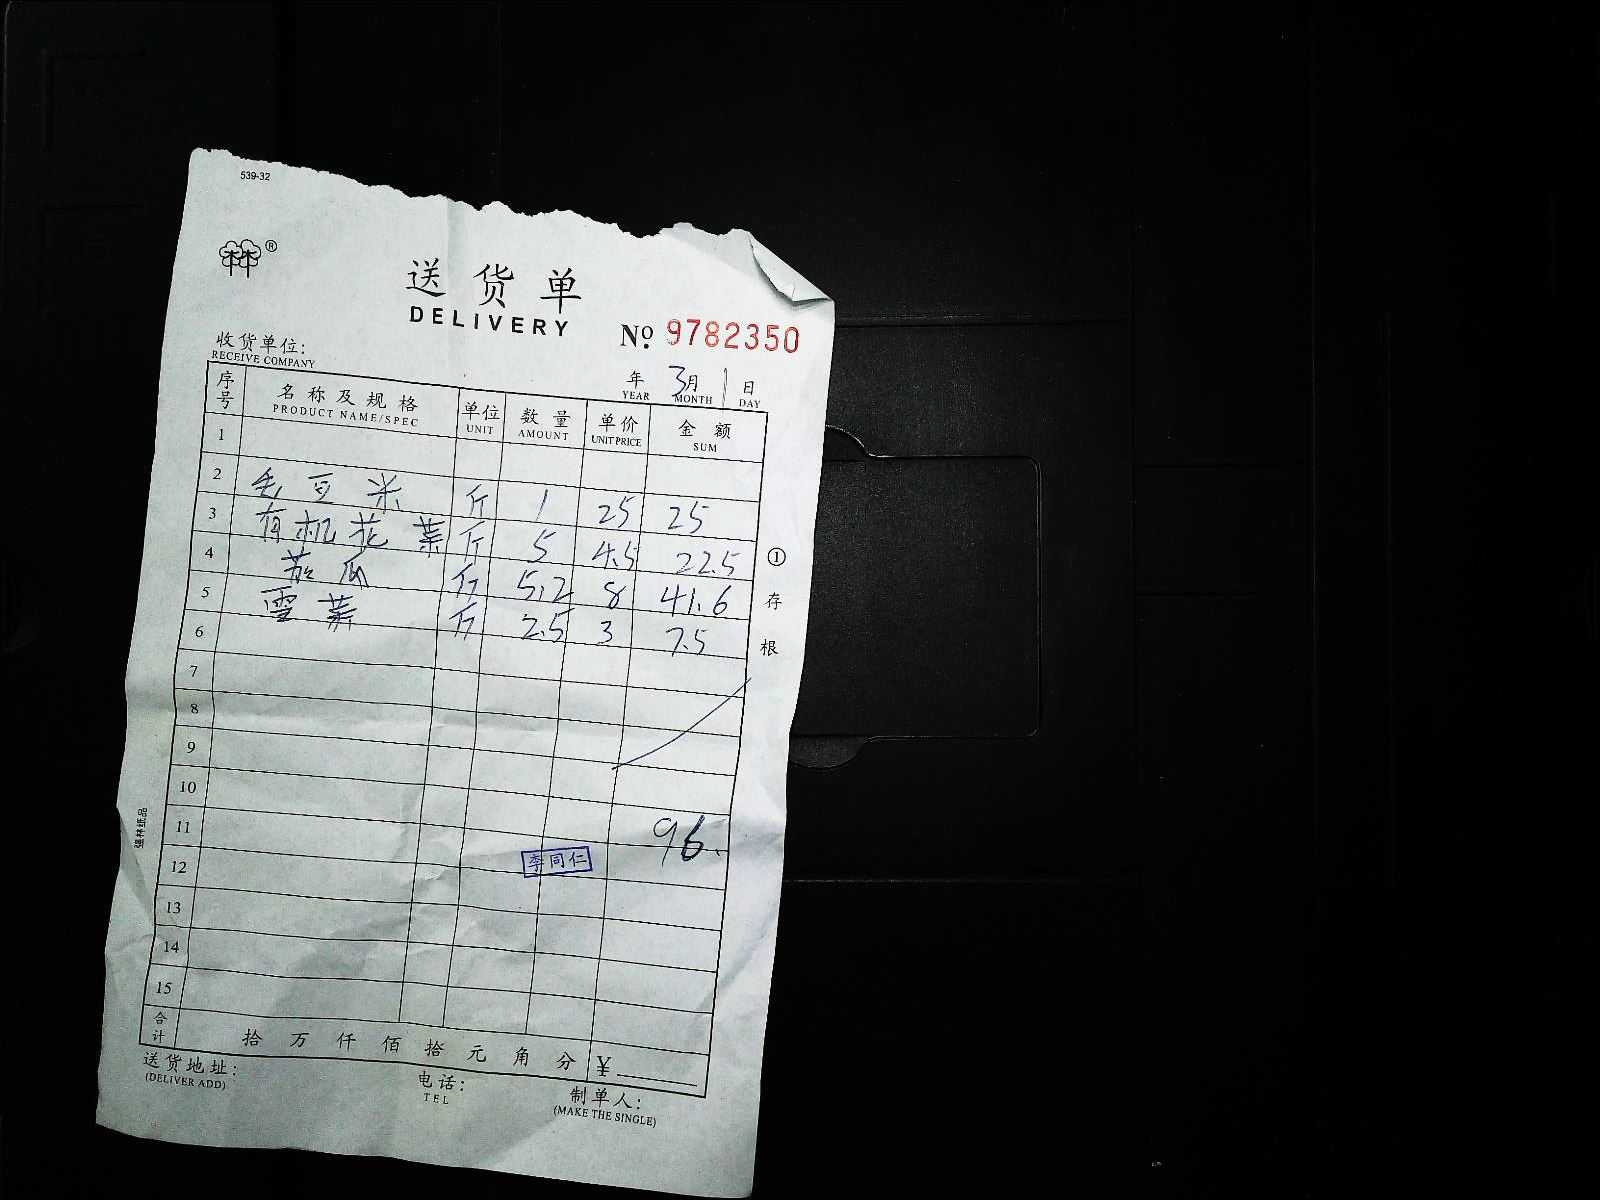 539-32
林®
送货单
DELIVERY
№ 9782350
收货单位:
RECEIVE COMPANY
年 3月 1日
YEAR MONTH DAY
序号 名称及规格 单位 数量 单价 金额
PRODUCT NAME/SPEC UNIT AMOUNT UNIT PRICE SUM
1
2 毛豆米 斤 1 25 25
3 有机花菜 斤 5 4.5 22.5
4 茄瓜 斤 5.2 8 41.6
5 雪菜 斤 2.5 3 7.5
6
7
8
9
10
11 96.
12 李同仁
13
14
15
合计 拾 万 仟 佰 拾 元 角 分 ¥
送货地址: 电话: 制单人:
(DELIVER ADD) TEL (MAKE THE SINGLE)
① 存根
强林纸品